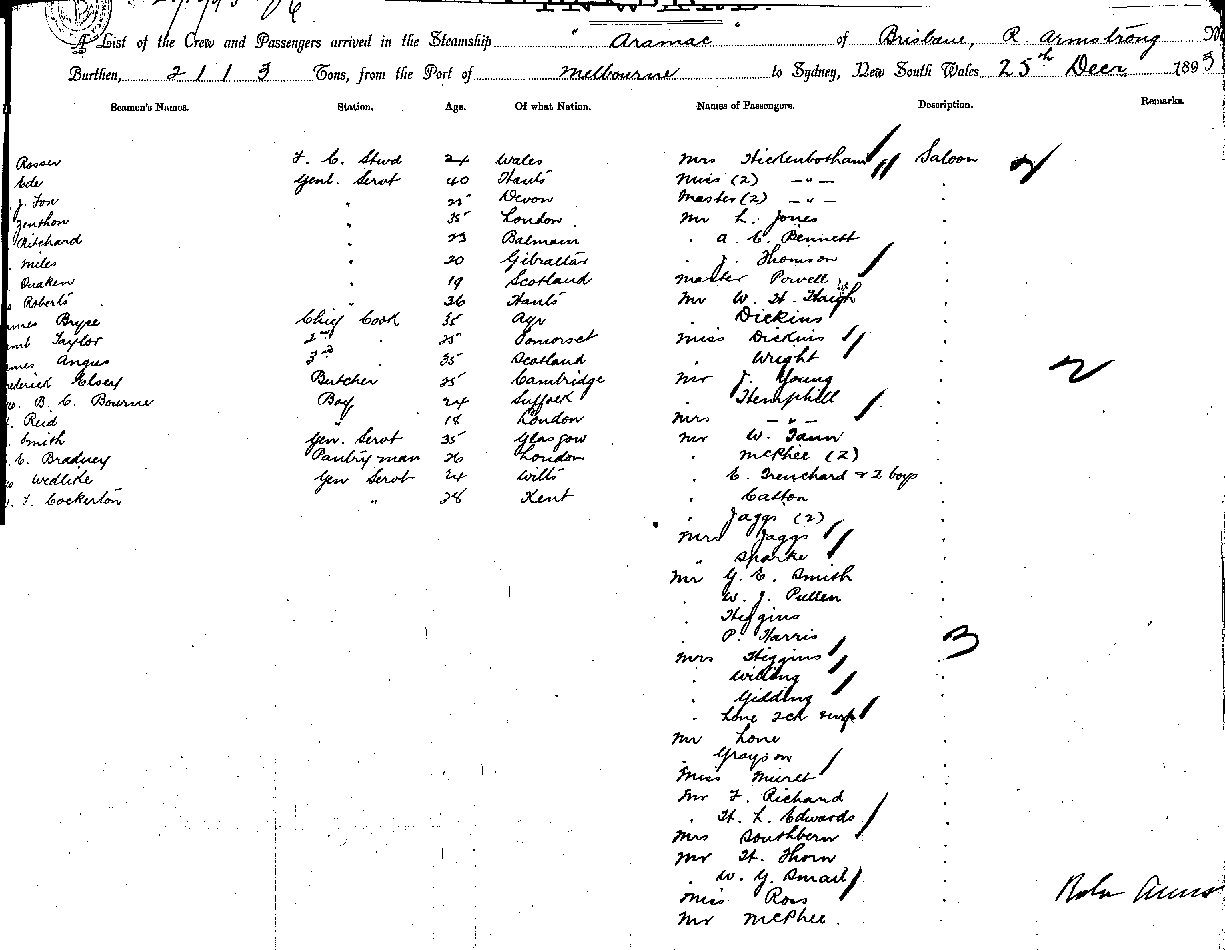 A List of the Crew and Passengers arrived in the Steamship "Aramac" of Brisbane, R. Armstrong
Burthen, 2113 Tons, from the Port of Melbourne to Sydney, New South Wales 25th Decr 1895
Seamen's Names. Station. Age. Of what Nation. Names of Passengers. Description. Remarks.
Rosser F. C. Stwd 24 Wales Mrs Hickenbotham Saloon 2
Ede Genl. Servt 40 Hants Miss (2) - " -
J. Fox " 25 Devon Master (2) - " -
" 35 London Mr L. Jones
Pritchard " 23 Balmain . A. C. Bennett
Miles " 20 Gibraltar . J. Thomson
" 19 Scotland Master Powell
Roberts " 36 Hants Mr W. H. Haigh
Bryce Chief Cook 35 Ayr . Dickins
Taylor 2nd . 25 Somerset Miss Dickins
Angus 3rd . 35 Scotland . Wright
Elsey Butcher 25 Cambridge Mr J. Young 2
B. C. Bourne Boy 24 Suffolk . Hemphell
Reid " 18 London Mrs - " -
Smith Gen. Servt 35 Glasgow Mr W. Tann
C. Bradney Pantryman 26 London . McPhee (2)
Wedlake Gen Servt 24 Wilts . E. Trenchard & 2 boys
F. Cockerton " 28 Kent . Catton
. Jaggs (2)
Mrs Jaggs
" Sparke
Mr G. E. Smith
. W. J. Pullen
. Higgins
. P. Harris 3
Mrs Higgins
. Willing
. Gidding
. Lone 2ch
Mr Lone
. Grayson
Miss Muret
Mr F. Richard
. H. L. Edwards
Mrs Southbern
Mr H. Thorn
. W. G. Smail
Miss Ross
Mr McPhee.